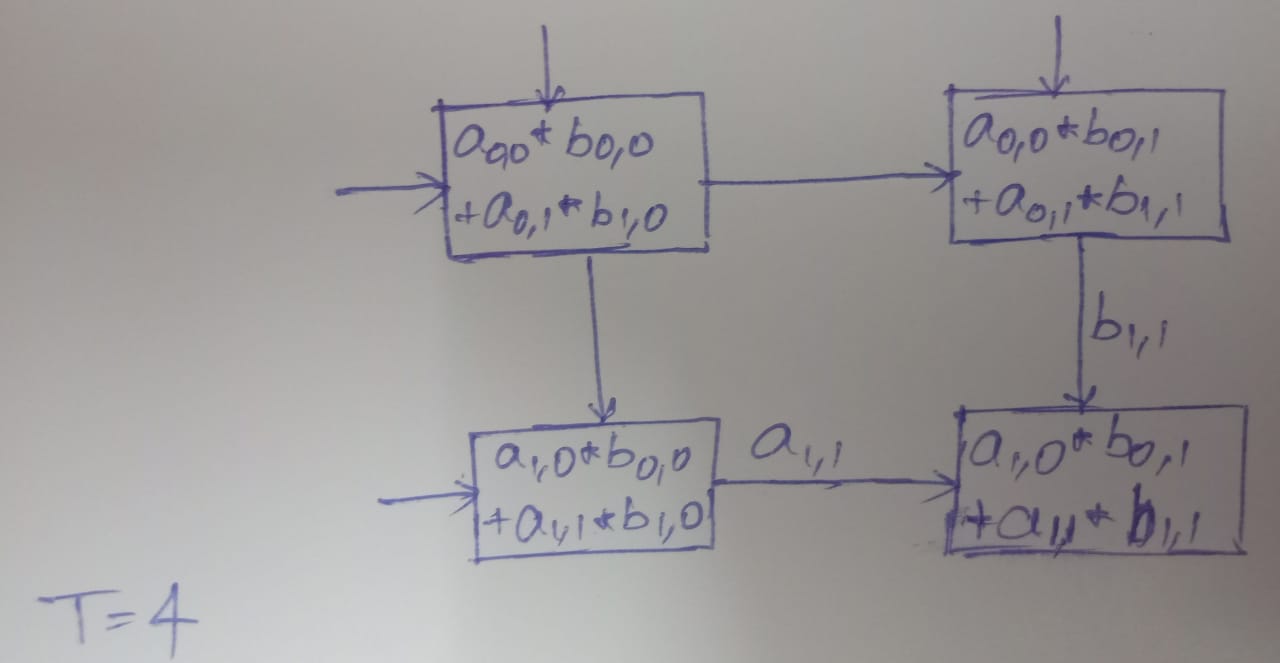 a0,0*b0,0
+a0,1*b1,0
a0,0*b0,1
+a0,1*b1,1
b1,1
a1,0*b0,0
+a1,1*b1,0
a1,1
a1,0*b0,1
+a1,1*b1,1
T=4